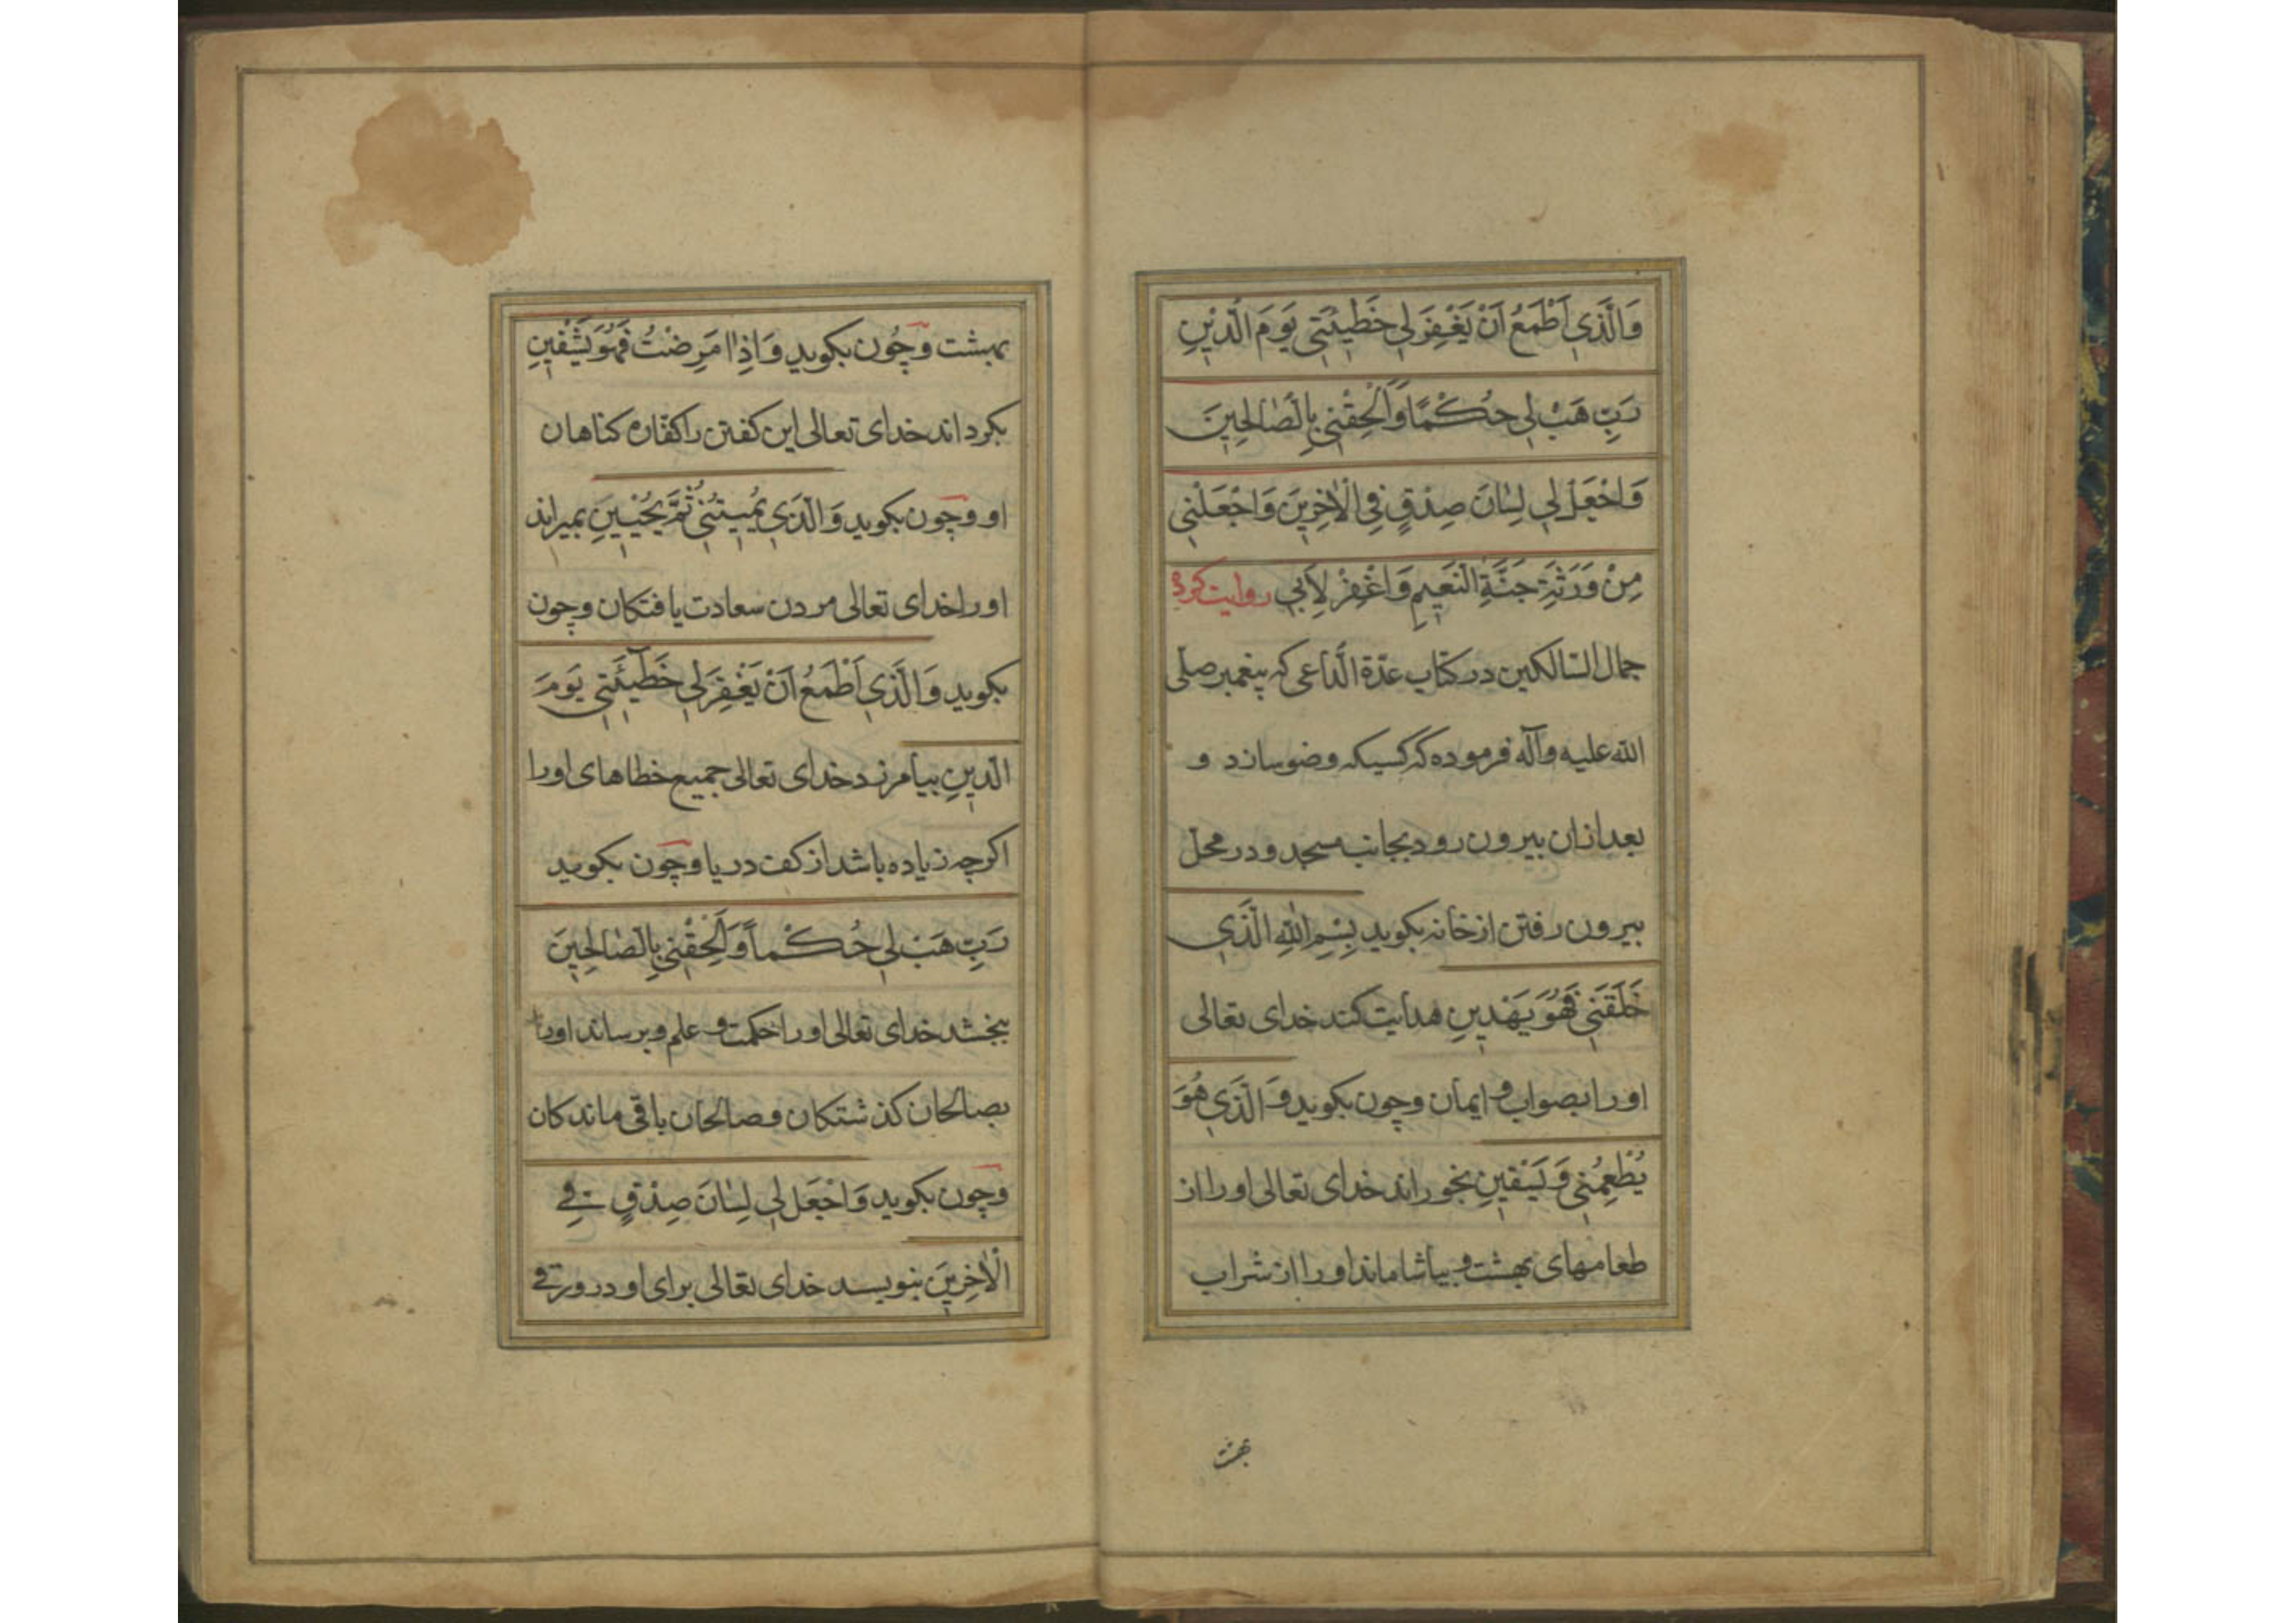 وَالَّذِي اَطْمَعُ اَنْ يَغْفِرَ لِي خَطِيئَتِي يَوْمَ الدّينِ
رَبِّ هَبْ لِي حُكْمًا وَاَلْحِقْنِي بِالصّٰالِحِينَ
وَاجْعَلْ لِي لِسٰانَ صِدْقٍ فِي الْاٰخِرِينَ وَاجْعَلْنِي
مِنْ وَرَثَةِ جَنَّةِ النَّعِيمِ وَاغْفِرْ لِاَبِي روایت کرده
جمال السّالکین در کتاب عدّة الدّاعی که پیغمبر صلّی
الله علیه وآله فرموده که کسیکه وضو سازد و
بعد ازان بیرون رود بجانب مسجد و در محل
بیرون رفتن از خانه بکوید بِسْمِ اللهِ الَّذِي
خَلَقَنِي فَهُوَ يَهْدِينِ هدایت کند خدای تعالی
او را بصواب و ایمان و چون بکوید وَ الَّذِي هُوَ
يُطْعِمُنِي وَ يَسْقِينِ بخوراند خدای تعالی او را از
طعامهای بهشت و بیاشاماند او را از شراب
بهشت
بهشت و چُون بکوید وَ اِذٰا مَرِضْتُ فَهُوَ يَشْفِينِ
بکرداند خدای تعالی این کفتن را کفّاره کناهان
او و چون بکوید وَ الَّذِي يُمِيتُنِي ثُمَّ يُحْيِينِ بمیراند
او را خدای تعالی مردن سعادت یافتکان و چون
بکوید وَ الَّذِي اَطْمَعُ اَنْ يَغْفِرَ لِي خَطِيئَتِي يَوْمَ
الدّينِ بیامرزد خدای تعالی جمیع خطاهای او را
اکرچه زیاده باشد از کف دریا و چون بکوید
رَبِّ هَبْ لِي حُكْماً وَ اَلْحِقْنِي بِالصّٰالِحِينَ
ببخشد خدای تعالی او را حکمت و علم و برساند او را
بصالحان کذشتکان و صالحان باقی ماندکان
و چون بکوید وَ اجْعَل لِي لِسٰانَ صِدْقٍ فِي
الْاٰخِرِينَ بنویسد خدای تعالی برای او در ورقی